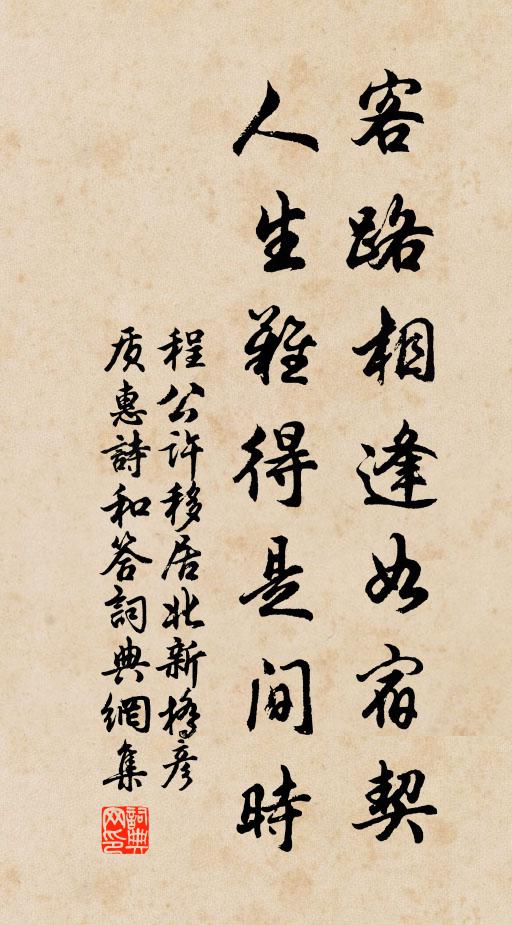 客路相逢如宿契
人生難得是間時
程公許移居北新橋彥
质惠詩和答詞典網集
詞典网印